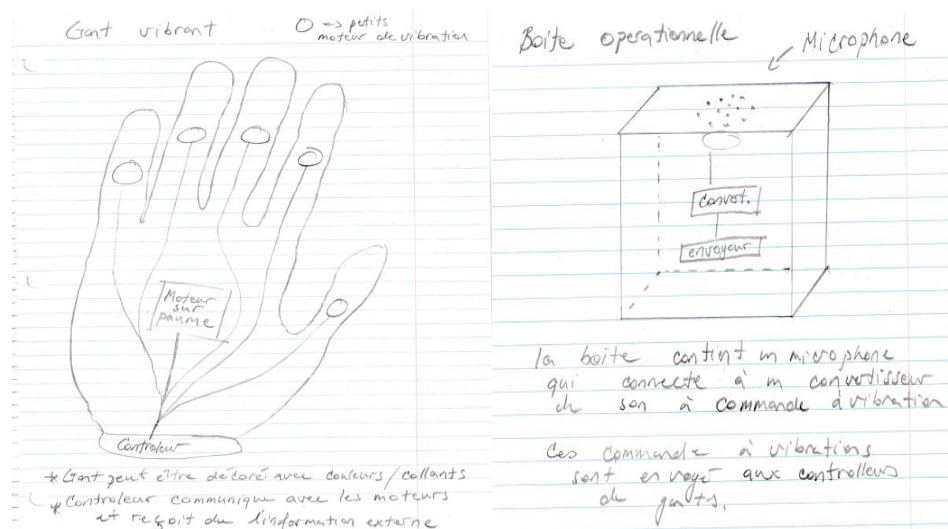 Gant vibrant
O => petits
moteur de vibration
Moteur
sur
paume
Controleur
* Gant peut être décoré avec couleurs/collants
* Controleur communique avec les moteurs
et reçoit de l'information externe
Boite operationnelle
Microphone
Convert.
envoyeur
la boite contint un microphone
qui connecte à un convertisseur
de son à commande à vibration
Ces commande à vibrations
sont envoyé aux controlleurs
de gants.